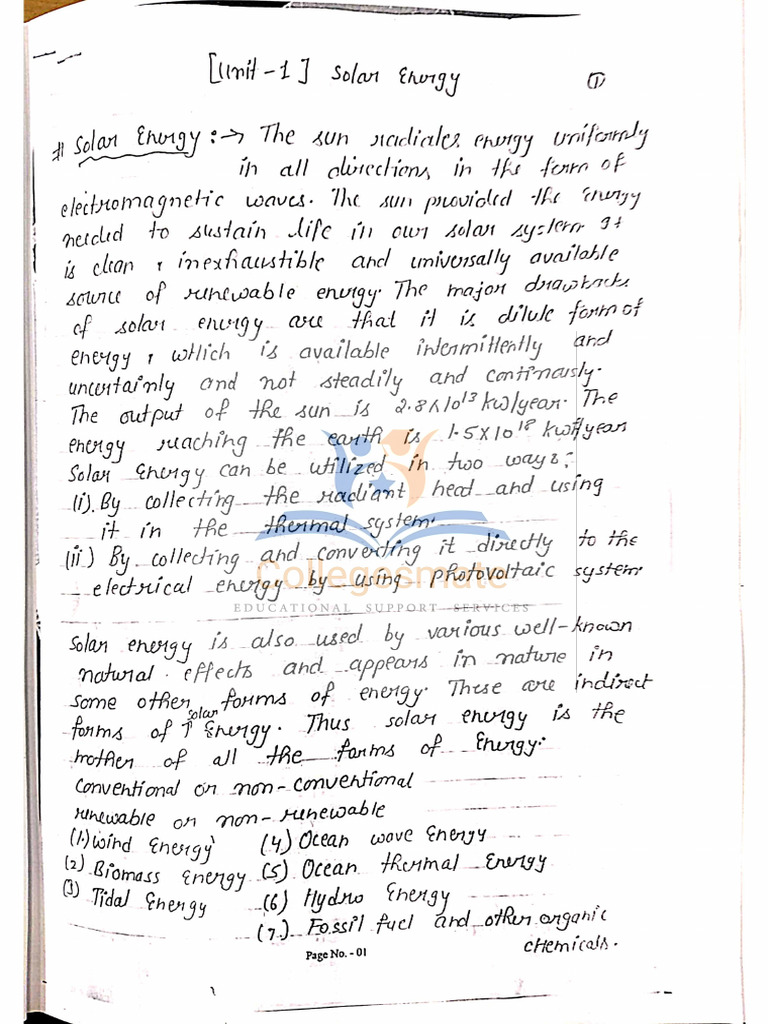 [Unit-1] Solar Energy
①
# Solar Energy :→ The sun radiates energy uniformly
in all directions, in the form of
electromagnetic waves. The sun provided the energy
needed to sustain life in our solar system. It
is clean, inexhaustible and universally available
source of renewable energy. The major drawbacks
of solar energy are that it is dilute form of
energy, which is available intermittently and
uncertainly and not steadily and continously.
The output of the sun is 2.8×10¹³ kw/year. The
energy reaching the earth is 1.5×10¹⁸ kwH/year
Solar Energy can be utilized in two ways:
(i). By collecting the radiant heat and using
it in the thermal system.
(ii) By collecting and converting it directly to the
electrical energy by using photovoltaic system.
Collegesmate
EDUCATIONAL SUPPORT SERVICES
Solar energy is also used by various well-known
natural effects and appears in nature in
some other forms of energy. These are indirect
forms of ↑ solar Energy. Thus solar energy is the
mother of all the forms of Energy:
Conventional or non-conventional
renewable or non-renewable
(1.) Wind Energy (4) Ocean wave Energy
(2) Biomass Energy (5) Ocean thermal Energy
(3) Tidal Energy (6) Hydro Energy
(7.) Fossil fuel and other organic
chemicals.
Page No. - 01